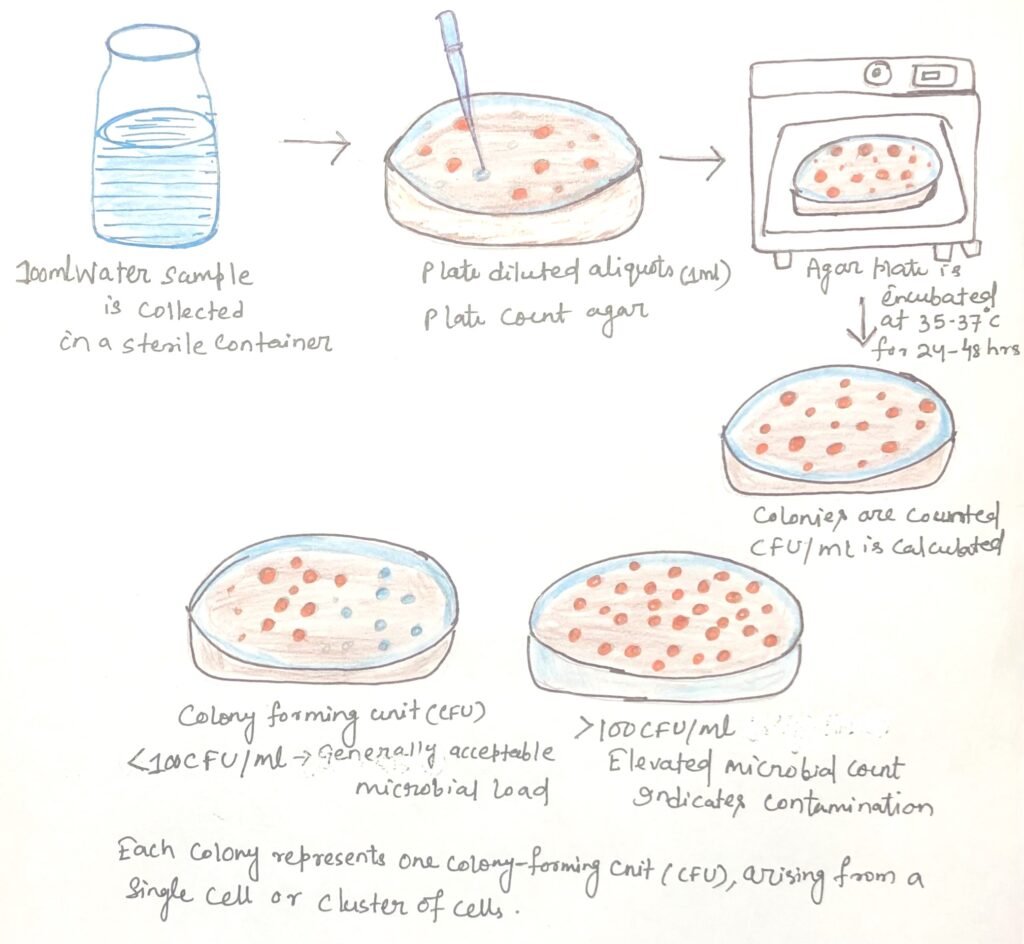 100ml Water sample
is collected
in a sterile container
Plate diluted aliquots (1ml)
Plate count agar
Agar plate is
incubated
at 35-37°c
for 24-48 hrs
Colonies are counted
CFU/ml is calculated
Colony forming unit (CFU)
<100CFU/ml → Generally acceptable
microbial load
>100CFU/ml
Elevated microbial count
Indicates contamination
Each colony represents one colony-forming unit (CFU), arising from a
single cell or cluster of cells.